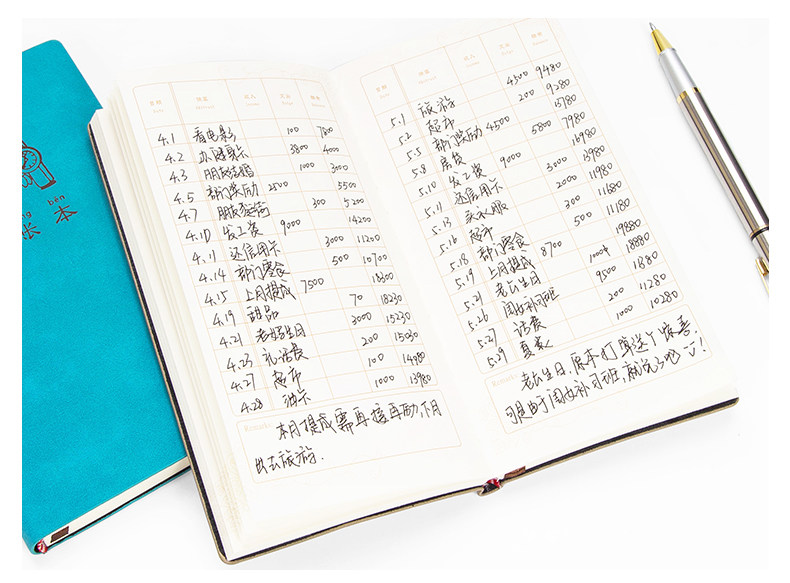 bēn
本
日期 项目 收入 支出 结余
4.1 看电影 100 7800
4.2 办健身卡 3800 4000
4.3 朋友结婚 1000 3000
4.5 部门奖励 2500 5500
4.7 朋友 300 5200
4.10 发工资 9000 14200
4.11 还信用卡 3000 11200
4.14 部门零食 500 10700
4.15 上月提成 7500 18300
4.19 甜品 70 18230
4.21 老妈生日 3000 15230
4.23 话费 200 15030
4.27 超市 100 14980
4.28 油卡 1000 13980
Remarks
本月提成需再接再励,下月
出去旅游.
日期 项目 收入 支出 结余
5.1 旅游 4500 9480
5.2 超市 200 9280
5.5 部门奖励 4500 13780
5.8 房贷 5800 7980
5.10 发工资 9000 16980
5.11 还信用卡 3000 13980
5.13 买衣服 2000 11980
5.16 超市 300 11680
5.18 部门零食 500 11180
5.19 上月提成 8700 19880
5.21 老公生日 1000 18880
5.26 闺女补习班 9500 11380
5.27 话费 200 11280
5.29 1000 10280
Remarks
老公生日,原本打算送个惊喜,
可是由于闺女补习班,就免了吧!